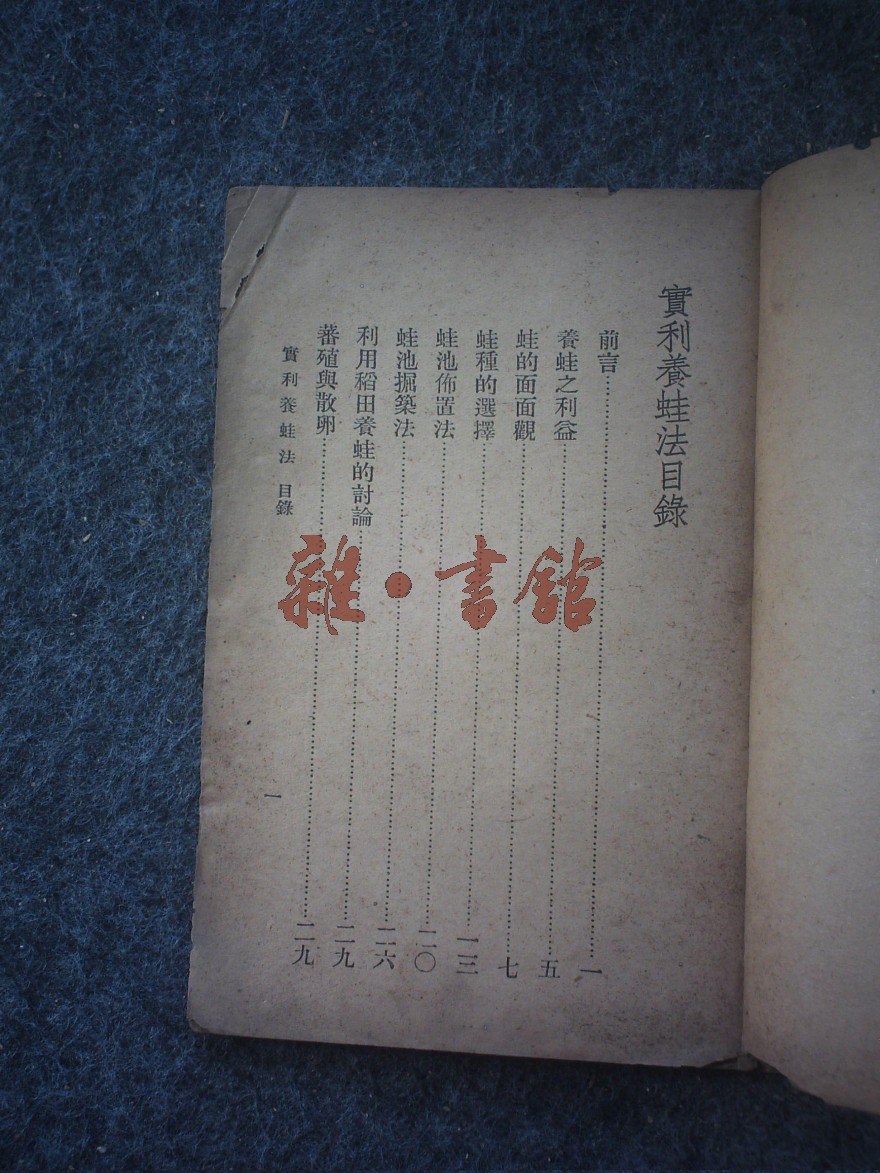 實利養蛙法目錄
前言……一
養蛙之利益……五
蛙的面面觀……七
蛙種的選擇……一三
蛙池佈置法……二〇
蛙池掘築法……二六
利用稻田養蛙的討論……二九
蕃殖與散卵……二九
實利養蛙法 目錄
一
雜·書館